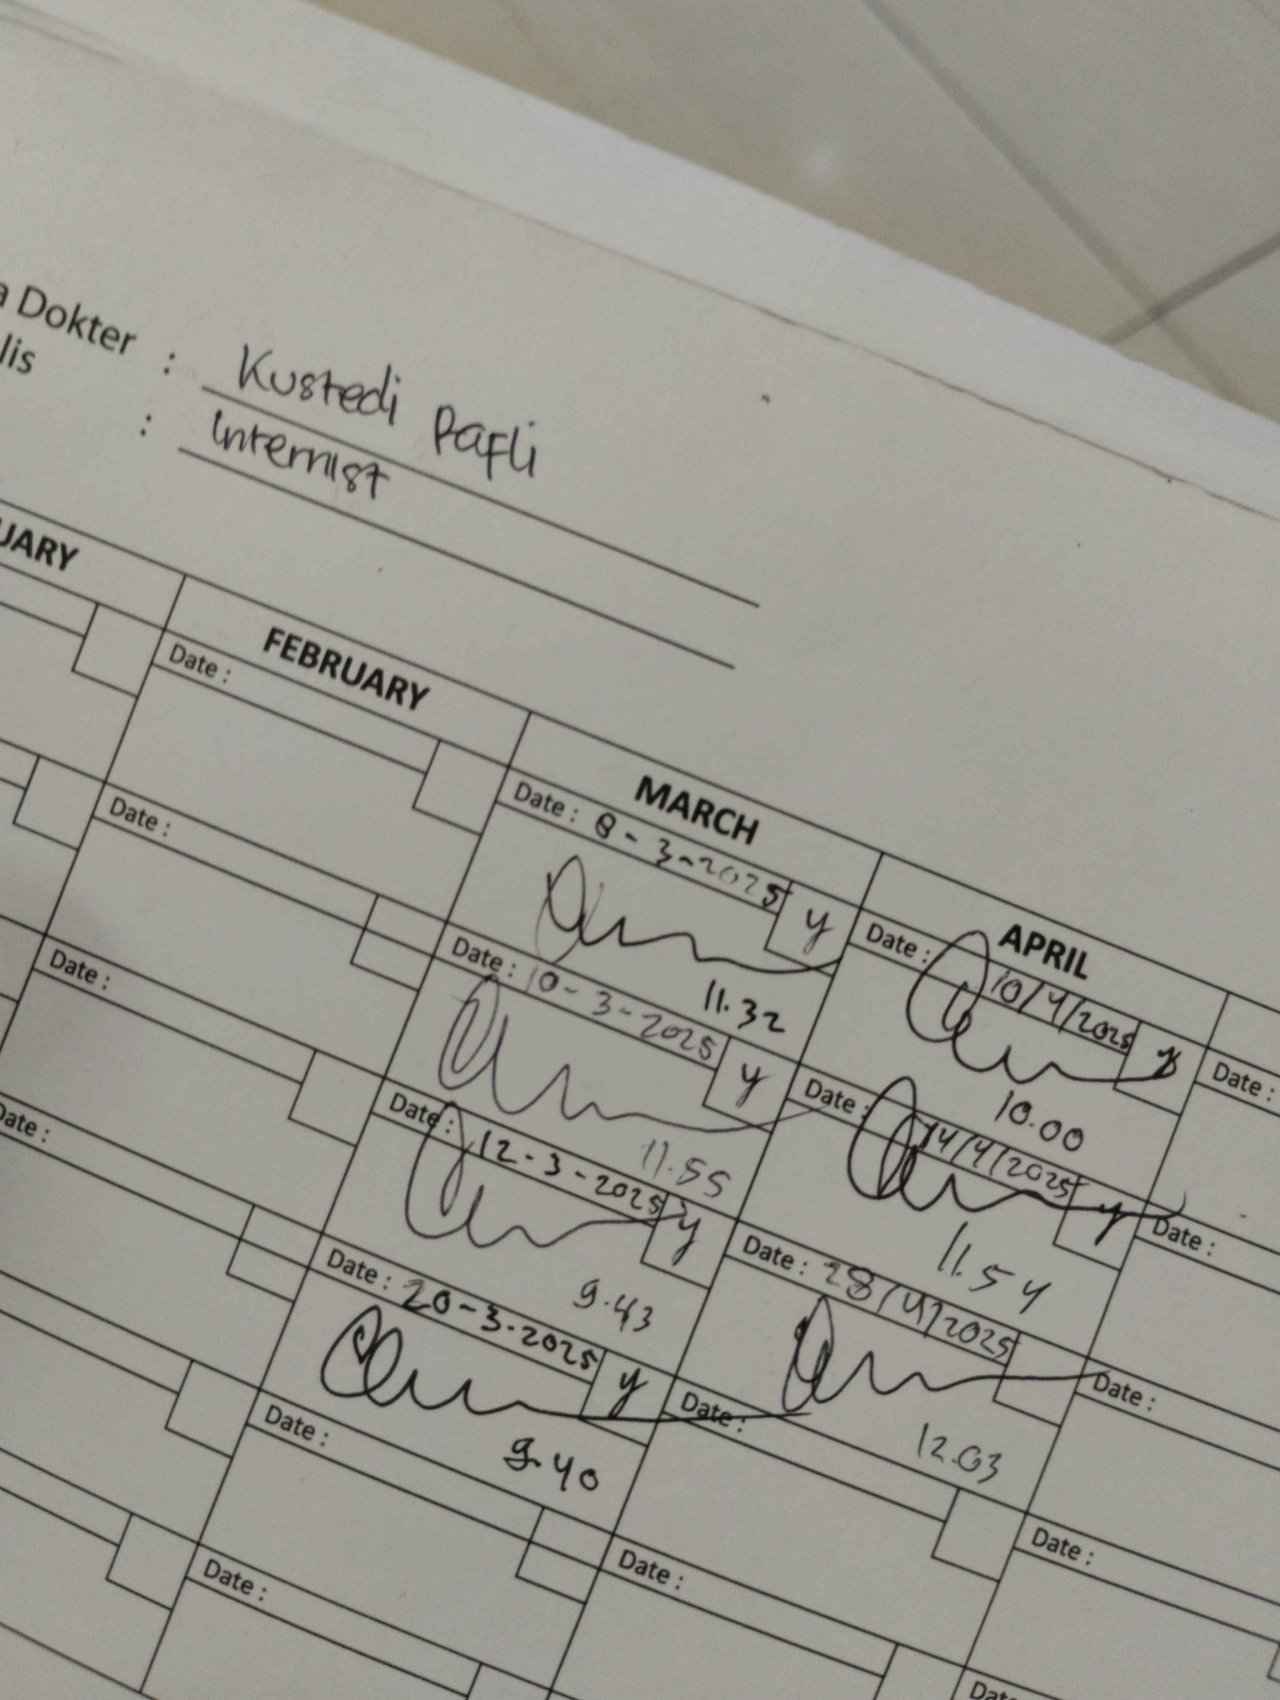 a Dokter : Kustedi Rafli
lis : Internist
UARY FEBRUARY MARCH APRIL
Date : Date : 8-3-2025 y Date : 10/4/2025 y Date :
11.32 10.00
Date : Date : 10-3-2025 y Date : 14/4/2025 y Date :
11.55 11.54
Date : Date : 12-3-2025 y Date : 28/4/2025 Date :
9.43 12.03
Date : Date : 20-3-2025 y Date : Date :
9.40
Date : Date :
Date : Date